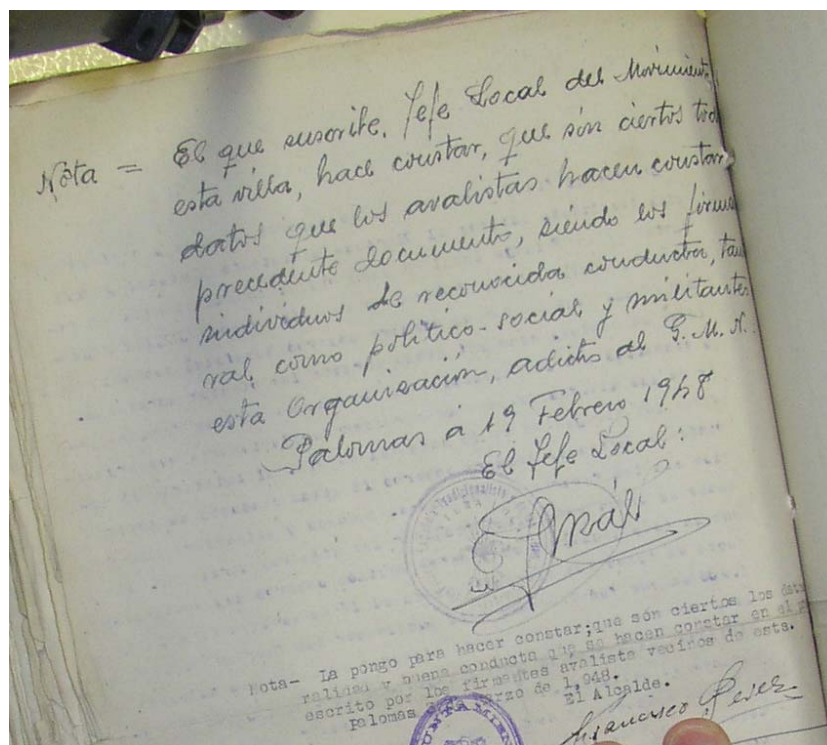 Nota = El que suscribe, Jefe Local del Movimiento
esta villa, hace constar, que són ciertos tod
datos que los avalistas hacen constar
precedente documento, siendo los firma
individuos de reconocida conducta, tan
ral como político-social y militantes
esta Organización, adictos al G. M. N.
Palomas á 19 Febrero 1948
El Jefe Local:
Nota- La pongo para hacer constar;que són ciertos los dat
ralidad y buena conducta que se hacen constar en el
escrito por los firmantes avaliste vecinos de esta.
Palomas marzo de 1.948.
El Alcalde.
Francisco Perez